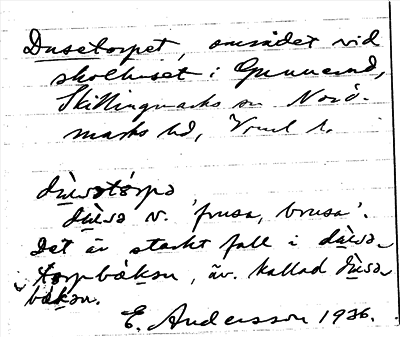 Dusetorpet, området vid
skolhuset i Gunnerud,
Skillingmarks sn Nord-
marks hd, Vrml l.
dùsɘtórpɘ
dùsɘ v. 'frusa, brusa'.
Det är starkt fall i dùsɘ-
torpbækɘn, äv. kallad dùsɘ-
bækɘn.
E. Andersson 1936.